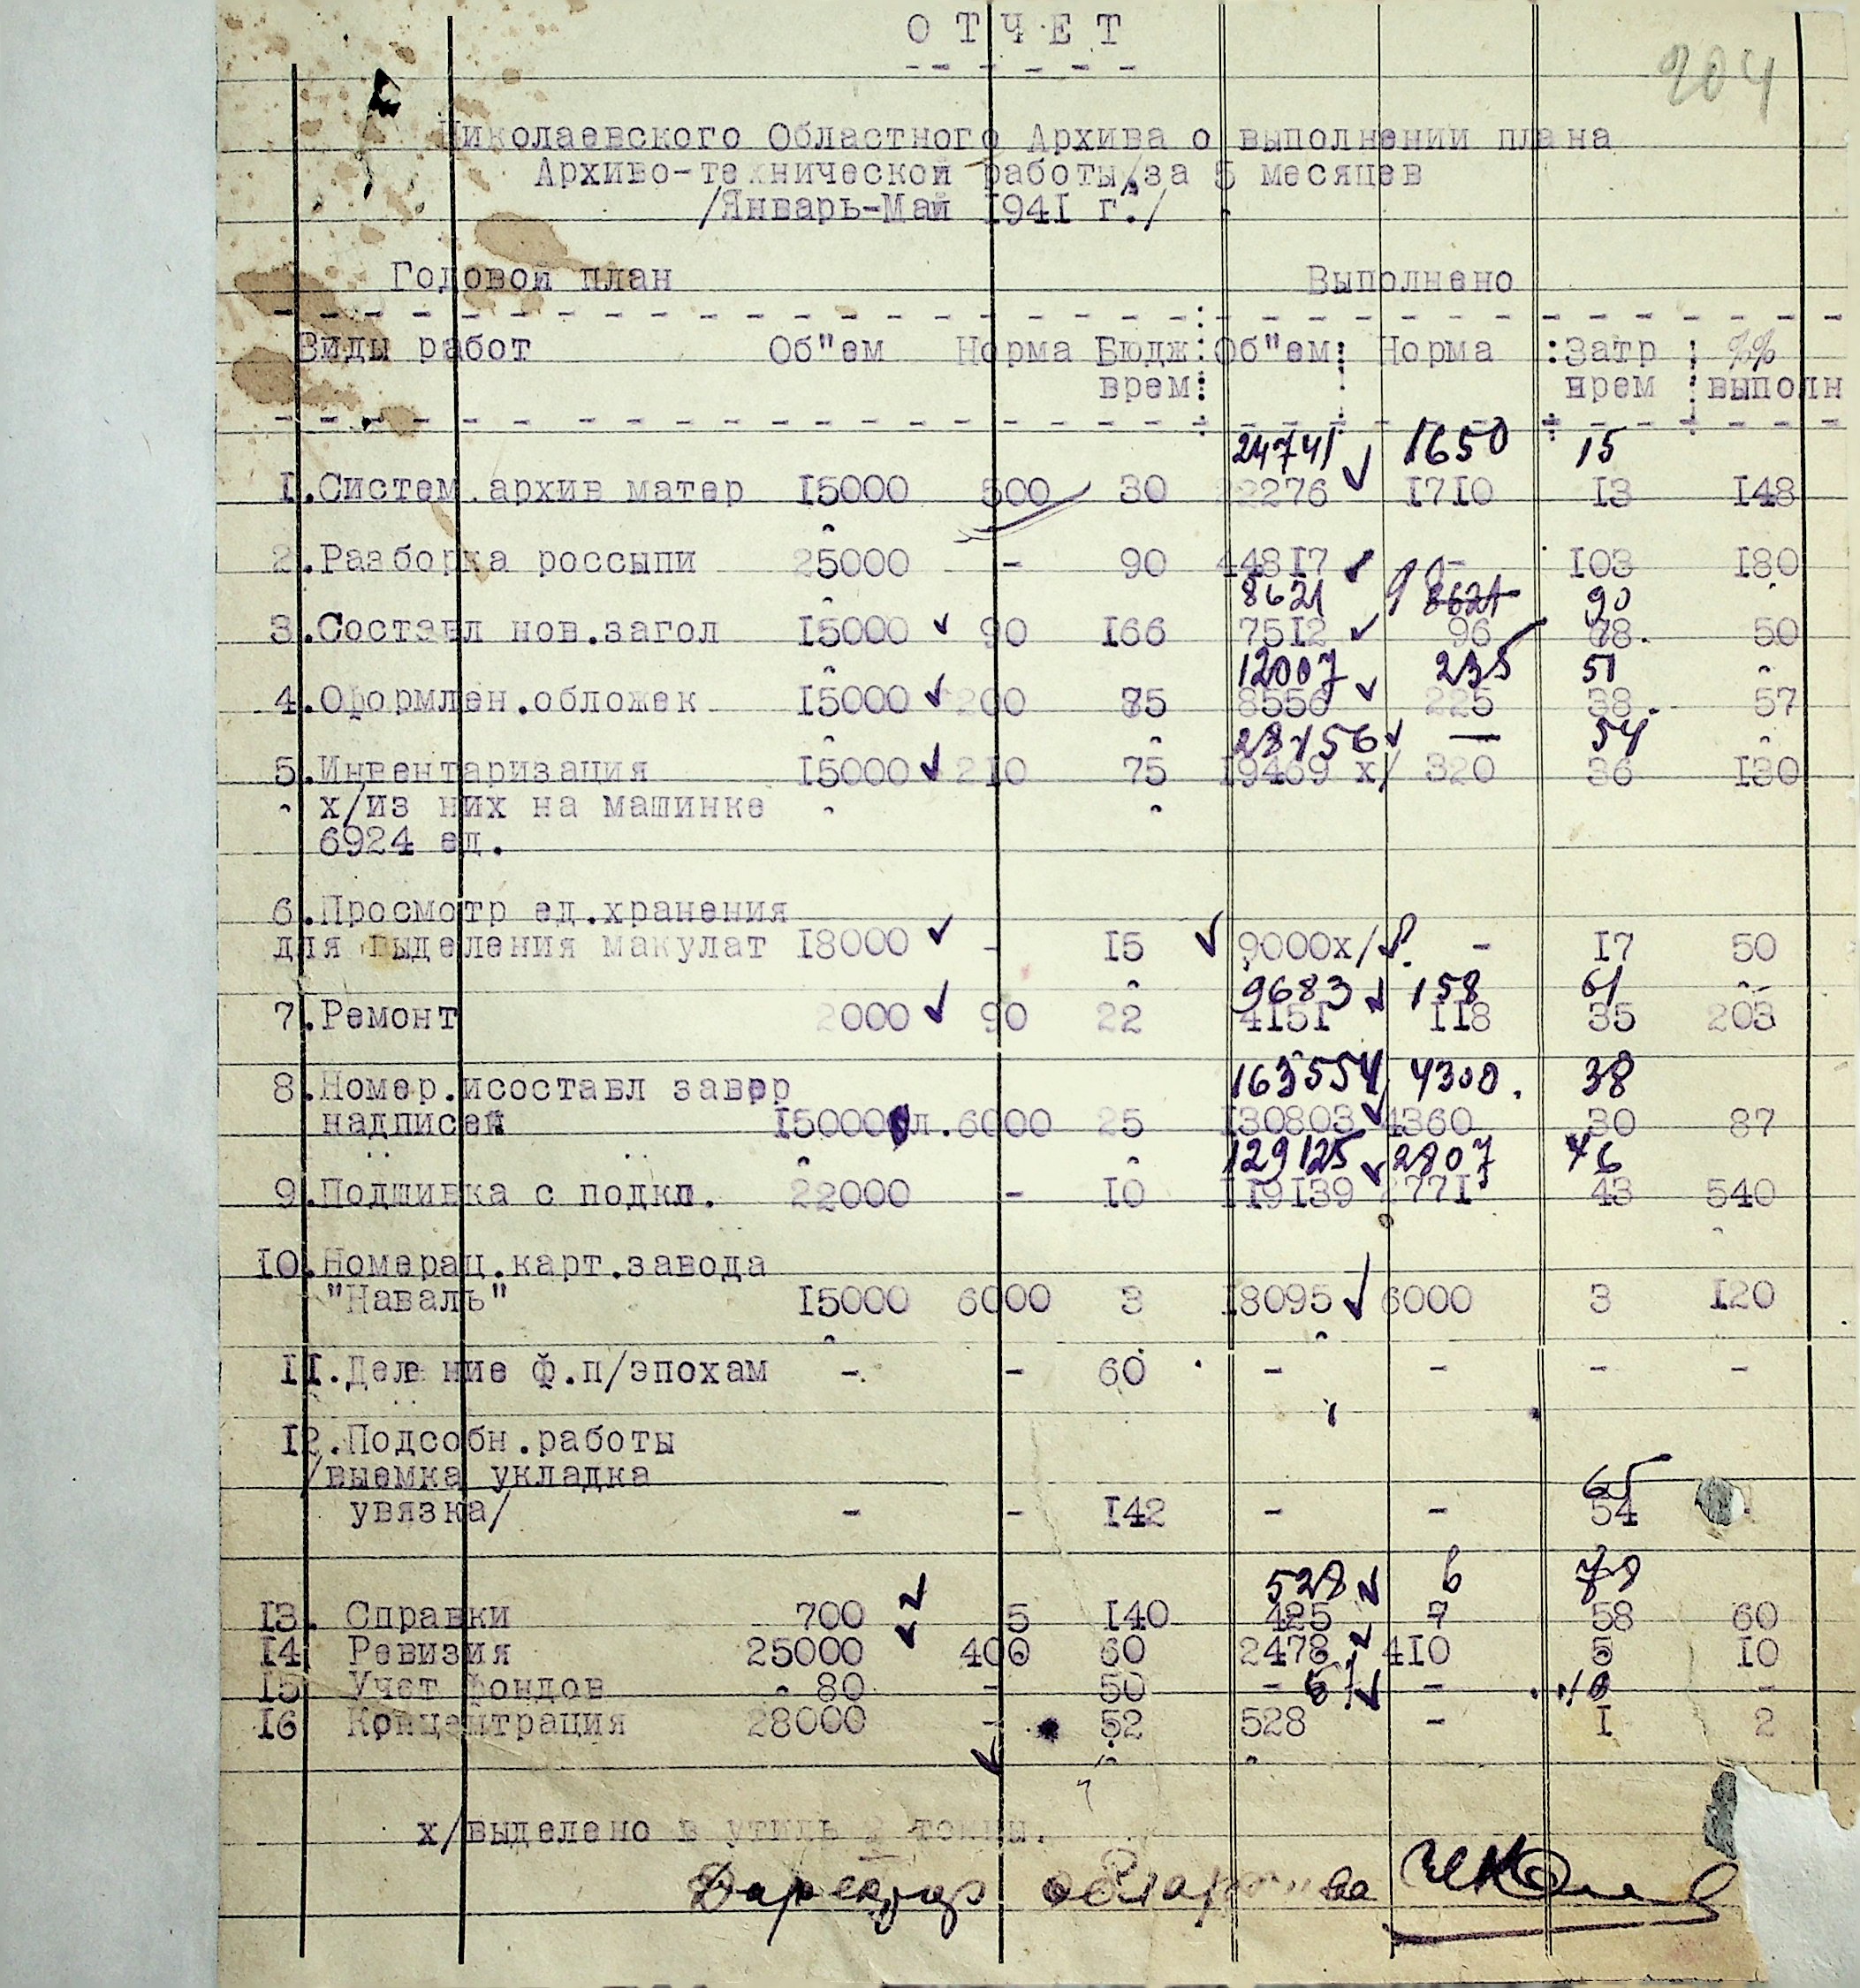 204
ОТЧЕТ
Николаевского Областного Архива о выполнении плана
Архиво-технической работы/за 5 месяцев
/Январь-Май 1941 г./
Годовой план Выполнено
Виды работ Об"ем Норма Бюдж Об"ем Норма Затр %%
врем врем выполн
24741 1650 15
1.Систем.архив матер 15000 500 30 22276 1710 13 148
2.Разборка россыпи 25000 - 90 44817 - 103 180
8621 8621 90
3.Составл нов.загол 15000 90 166 7512 96 78 50
12007 235 51
4.Оформлен.обложек 15000 200 75 8556 225 38 57
28156 — 54
5.Инвентаризация 15000 210 75 19469 х/ 320 36 130
х/из них на машинке
6924 ед.
6.Просмотр ед.хранения
для выделения макулат 18000 - 15 9000х/ - 17 50
9683 158 61
7.Ремонт 2000 90 22 4151 118 35 203
163554 4300. 38
8.Номер.исоставл завер
надписей 150000л. 6000 25 130803 4360 30 87
129125 2807 46
9.Подшивка с подкл. 22000 - 10 119139 2771 43 540
10.Номерац.карт.завода
"Наваль" 15000 6000 3 18095 6000 3 120
11.Деление ф.п/эпохам - - 60 - - - -
12.Подсобн.работы
/выемка укладка
65
увязка/ - - 142 - - 54
528 6 78
13. Справки 700 5 140 425 7 58 60
14 Ревизия 25000 400 60 2478 410 5 10
15 Учет фондов 80 - 50 - - -
16 Концентрация 28000 - 52 528 - 1 2
х/выделено в утиль тонны.
Директор облархива